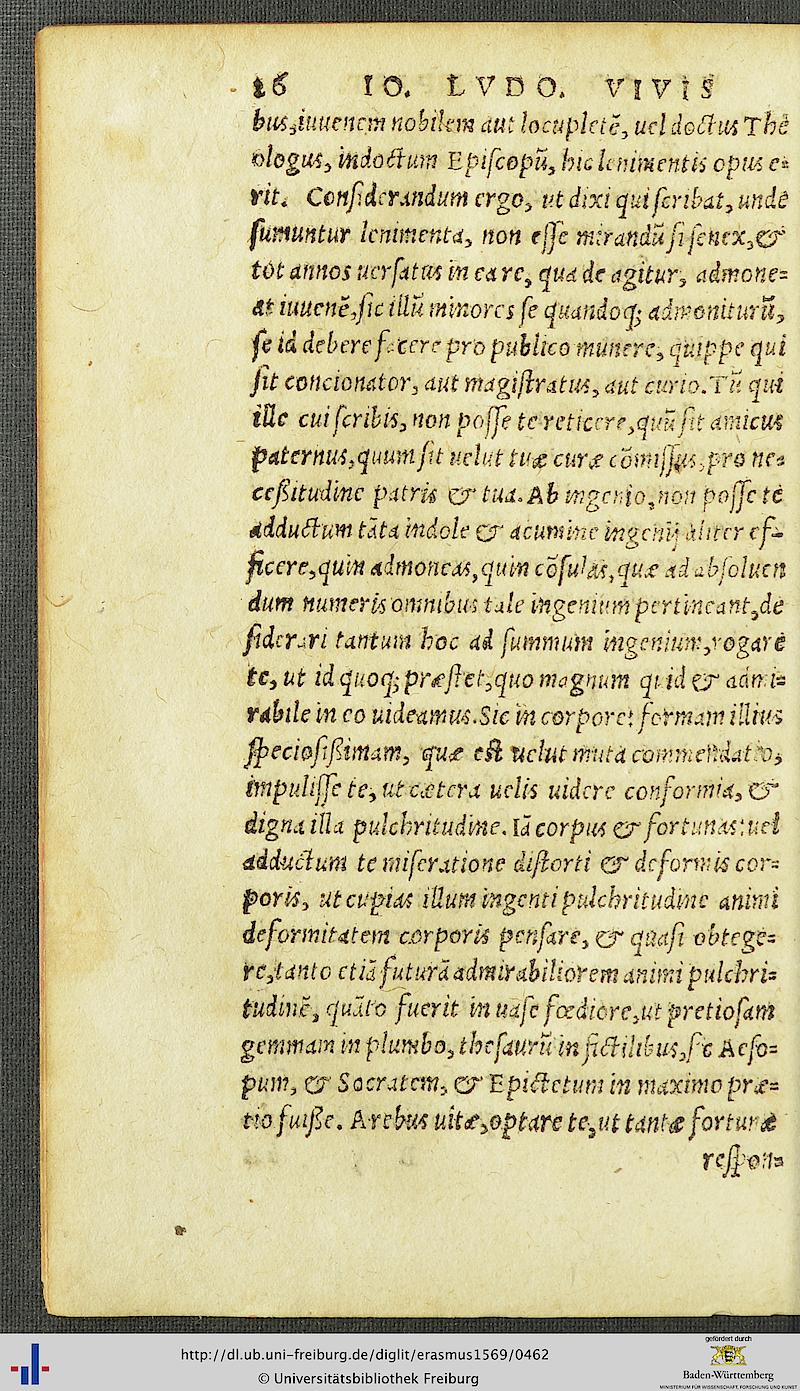 16 IO. LVDO. VIVIS
bus, iuuenem nobilem aut locupletē, uel doctus Thē
ologus, indoctum Episcopū, hic lenimentis opus e=
rit. Considerandum ergo, ut dixi qui scribat, unde
sumuntur lenimenta, non esse mirandū si senex, &
tot annos uersatus in ea re, qua de agitur, admone=
at iuuenē, sic illū minores se quandoq; admoniturū,
se id debere facere pro publico munere, quippe qui
sit concionator, aut magistratus, aut curio. Tū qui
ille cui scribis, non posse te reticere, quū sit amicus
paternus, quum sit uelut tuæ curæ cōmissus, pro ne=
ceßitudine patris & tua. Ab ingenio, non posse te
adductum tāta indole & acumine ingenij aliter ef=
ficere, quin admoneas, quin cōsulas, quæ ad absoluen
dum numeris omnibus tale ingenium pertineant, de
siderari tantum hoc ad summum ingenium, rogare
te, ut id quoq; præstet, quo magnum quid & admi=
rabile in eo uideamus. Sic in corpore: formam illius
speciosißimam, quæ est uelut muta commendatio,
impulisse te, ut cætera uelis uidere conformia, &
digna illa pulchritudine. Iā corpus & fortunas: uel
adductum te miseratione distorti & deformis cor=
poris, ut cupias illum ingenti pulchritudine animi
deformitatem corporis pensare, & quasi obtege=
re, tanto etiā futurā admirabiliorem animi pulchri=
tudinē, quāto fuerit in uase fœdiore, ut pretiosam
gemmam in plumbo, thesaurū in fictilibus, sic Aeso=
pum, & Socratem, & Epictetum in maximo præ=
tio fuiße. A rebus uitæ, optare te, ut tantæ fortunæ
respon=
http://dl.ub.uni-freiburg.de/diglit/erasmus1569/0462
© Universitätsbibliothek Freiburg
gefördert durch
Baden-Württemberg
MINISTERIUM FÜR WISSENSCHAFT, FORSCHUNG UND KUNST